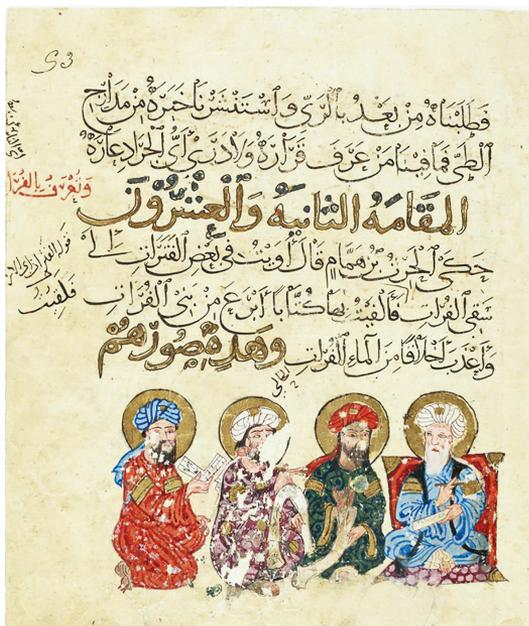 53
فطلبناه من بعد بالري واستنشرنا خبره من مدارج
الطي فما فينا من عرف قراره ولا درى أي الجراد عاره
وتعرف بالفرا
المقامه الثانيه والعشرون
حكى الحرث بن همام قال أويت في بعض الفترات إلى
سقي الفرات فألفيت بها كتابا أبرع من بني الفرات
فلقيت
وأعذب أخلاقا من الماء الفرات وهذه صورهم